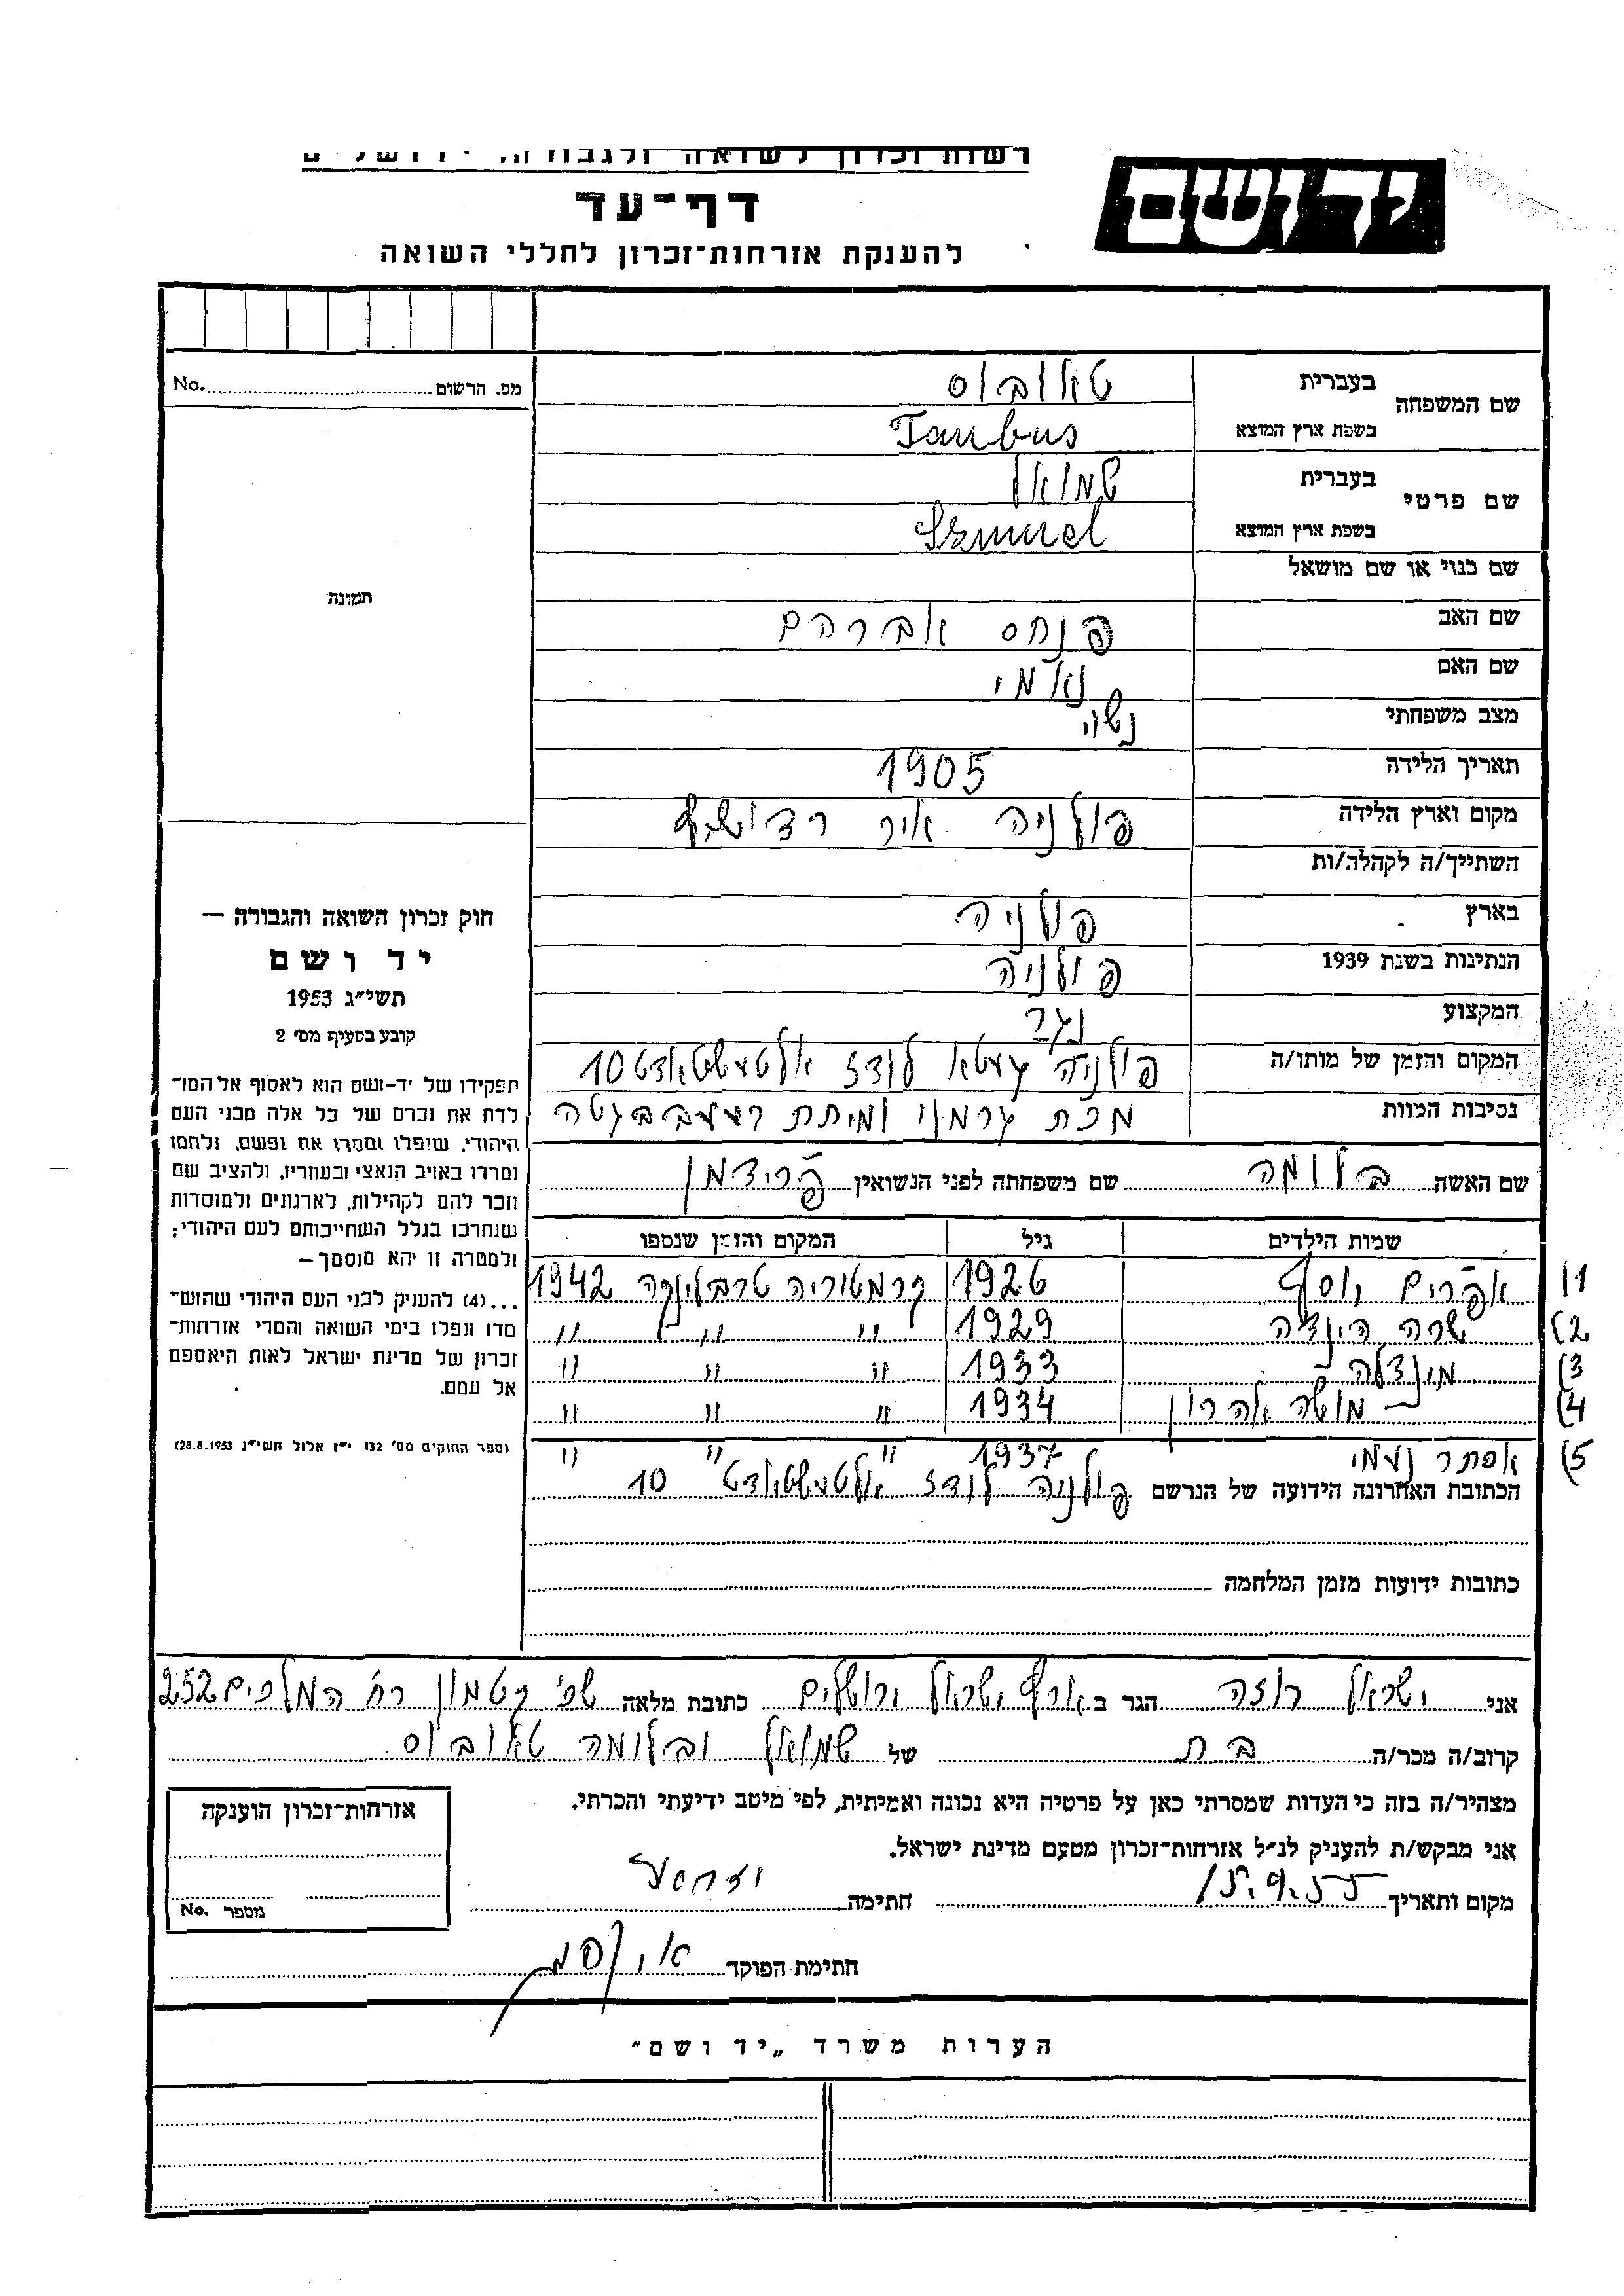 רשות זכרון לשואה ולגבורה, ירושלים
יד ושם
דף-עד
להענקת אזרחות-זכרון לחללי השואה
שם המשפחה בעברית טאובוס
בשפת ארץ המוצא Taubus
שם פרטי בעברית שמואל
בשפת ארץ המוצא Szmuel
שם כנוי או שם מושאל
שם האב פנחס אברהם
שם האם נאמי
מצב משפחתי נשוי
תאריך הלידה 1905
מקום וארץ הלידה פולניה איר רדושיץ
השתייך/ה לקהלה/ות
בארץ פולניה
הנתינות בשנת 1939 פולניה
המקצוע נגר
המקום והזמן של מותו/ה פולניה געטא לודז אלטשטאדט 10
נסיבות המוות מכת גרמני ומיתת רעב בגטה
שם האשה בלומה שם משפחתה לפני הנשואין פרידמן
שמות הילדים גיל המקום והזמן שנספו
1) אפרים יוסף 1926 קרמטוריה טרבלינקה 1942
2) שרה הינדה 1929 " " "
3) מינדלה 1933 " " "
4) מושה אהרון 1934 " " "
5) אסתר נעמי 1937 " " "
הכתובת האחרונה הידועה של הנרשם פולניה לודז אלטשטאדט 10
כתובות ידועות מזמן המלחמה
מס. הרשום No.
תמונה
חוק זכרון השואה והגבורה —
יד ושם
תשי״ג 1953
קובע בסעיף מס׳ 2
תפקידו של יד-ושם הוא לאסוף אל המו־
לדת את זכרם של כל אלה מבני העם
היהודי, שנפלו ומסרו את נפשם, נלחמו
ומרדו באויב הנאצי ובעוזריו, ולהציב שם
וזכר להם לקהילות, לארגונים ולמוסדות
שנחרבו בגלל השתייכותם לעם היהודי;
ולמטרה זו יהא מוסמך —
...(4) להענק לבני העם היהודי שהוש־
מדו ונפלו בימי השואה והמרי אזרחות־
זכרון של מדינת ישראל לאות היאספם
אל עמם.
(ספר החוקים מס׳ 132 י״ז אלול תשי״ג 28.8.1953)
אני ישראל רוזה הגר ב ארץ ישראל ירושלים כתובת מלאה שכ׳ קטמון רח המלכים 252
קרוב/ה מכר/ה בת של שמואל ובלומה טאובוס
מצהיר/ה בזה כי העדות שמסרתי כאן על פרטיה היא נכונה ואמיתית, לפי מיטב ידיעתי והכרתי.
אני מבקש/ת להעניק לנ״ל אזרחות־זכרון מטעם מדינת ישראל.
מקום ותאריך חתימה
חתימת הפוקד
אזרחות־זכרון הוענקה
מספר No.
הערות משרד „יד ושם״